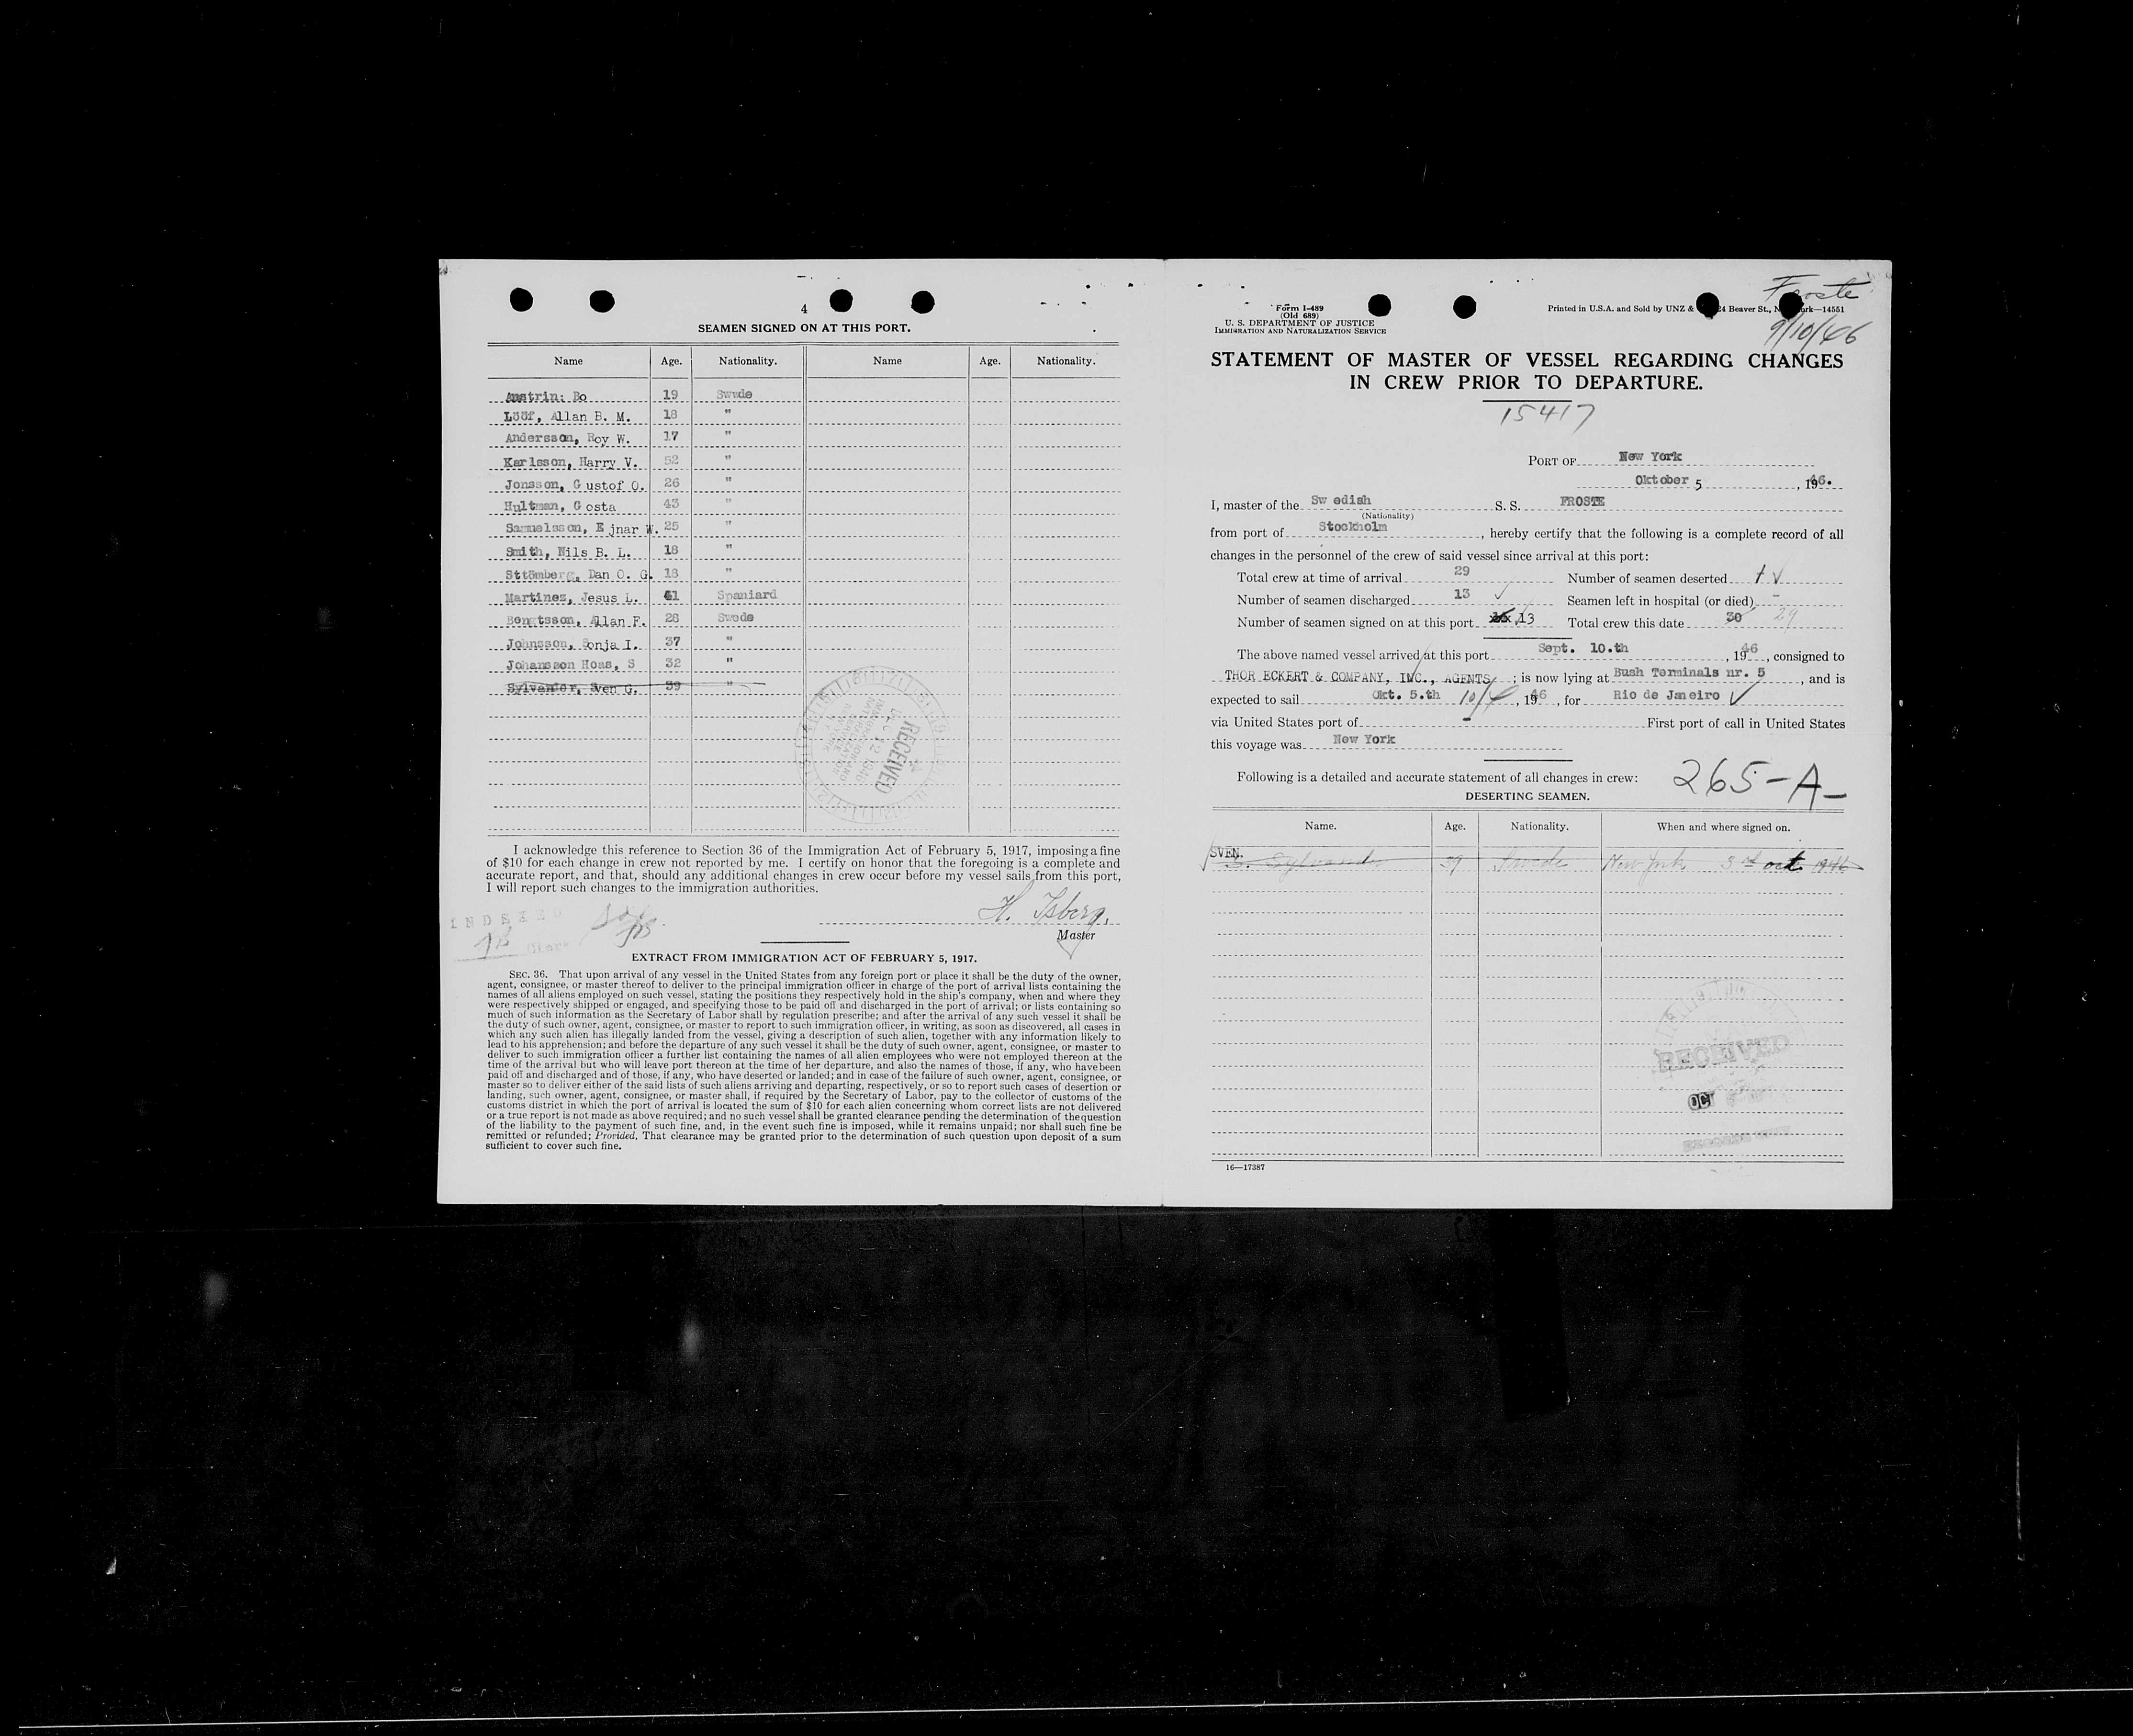 4
SEAMEN SIGNED ON AT THIS PORT.
Name Age. Nationality. Name Age. Nationality.
Amstrin: Bo 19 Swwde
Lööf, Allan B. M. 18 "
Andersson, Roy W. 17 "
Karlsson, Harry V. 52 "
Jonsson, G ustof O. 26 "
Hultman, G osta 43 "
Samuelsson, E jnar W. 25 "
Smith, Nils B. L. 18 "
Sttömberg, Dan O. G. 18 "
Martinez, Jesus L. 41 Spaniard
Bengtsson, Allan F. 28 Swede
Johnsson, Sonja I. 37 "
Johansson Hoas, S 32 "
Sylvander, Sven G. 39 "
RECEIVED
I acknowledge this reference to Section 36 of the Immigration Act of February 5, 1917, imposing a fine
of $10 for each change in crew not reported by me. I certify on honor that the foregoing is a complete and
accurate report, and that, should any additional changes in crew occur before my vessel sails from this port,
I will report such changes to the immigration authorities.
INDEXED
H. Isberg,
Master
EXTRACT FROM IMMIGRATION ACT OF FEBRUARY 5, 1917.
SEC. 36. That upon arrival of any vessel in the United States from any foreign port or place it shall be the duty of the owner,
agent, consignee, or master thereof to deliver to the principal immigration officer in charge of the port of arrival lists containing the
names of all aliens employed on such vessel, stating the positions they respectively hold in the ship's company, when and where they
were respectively shipped or engaged, and specifying those to be paid off and discharged in the port of arrival; or lists containing so
much of such information as the Secretary of Labor shall by regulation prescribe; and after the arrival of any such vessel it shall be
the duty of such owner, agent, consignee, or master to report to such immigration officer, in writing, as soon as discovered, all cases in
which any such alien has illegally landed from the vessel, giving a description of such alien, together with any information likely to
lead to his apprehension; and before the departure of any such vessel it shall be the duty of such owner, agent, consignee, or master to
deliver to such immigration officer a further list containing the names of all alien employees who were not employed thereon at the
time of the arrival but who will leave port thereon at the time of her departure, and also the names of those, if any, who have been
paid off and discharged and of those, if any, who have deserted or landed; and in case of the failure of such owner, agent, consignee, or
master so to deliver either of the said lists of such aliens arriving and departing, respectively, or so to report such cases of desertion or
landing, such owner, agent, consignee, or master shall, if required by the Secretary of Labor, pay to the collector of customs of the
customs district in which the port of arrival is located the sum of $10 for each alien concerning whom correct lists are not delivered
or a true report is not made as above required; and no such vessel shall be granted clearance pending the determination of the question
of the liability to the payment of such fine, and, in the event such fine is imposed, while it remains unpaid; nor shall such fine be
remitted or refunded; Provided, That clearance may be granted prior to the determination of such question upon deposit of a sum
sufficient to cover such fine.
Froste
9/10/46
Form I-489
(Old 689)
U. S. DEPARTMENT OF JUSTICE
IMMIGRATION AND NATURALIZATION SERVICE
Printed in U.S.A. and Sold by UNZ & 24 Beaver St., N ork—14551
STATEMENT OF MASTER OF VESSEL REGARDING CHANGES
IN CREW PRIOR TO DEPARTURE.
15417
PORT OF New York
Oktober 5, 1946.
I, master of the Sw edish S. S. FROSTE
(Nationality)
from port of Stockholm, hereby certify that the following is a complete record of all
changes in the personnel of the crew of said vessel since arrival at this port:
Total crew at time of arrival 29 Number of seamen deserted
Number of seamen discharged 13 Seamen left in hospital (or died) -
Number of seamen signed on at this port 13 Total crew this date 30 29
The above named vessel arrived at this port Sept. 10.th, 1946, consigned to
THOR ECKERT & COMPANY, INC., AGENTS; is now lying at Bush Terminals nr. 5, and is
expected to sail Okt. 5.th 10/6, 1946, for Rio de Janeiro
via United States port of - First port of call in United States
this voyage was New York
Following is a detailed and accurate statement of all changes in crew: 265-A-
DESERTING SEAMEN.
Name. Age. Nationality. When and where signed on.
SVEN. G. Sylvander 39 Swede New York 3rd oct 1946
RECEIVED
OCT
RECORDS UNIT
16—17387